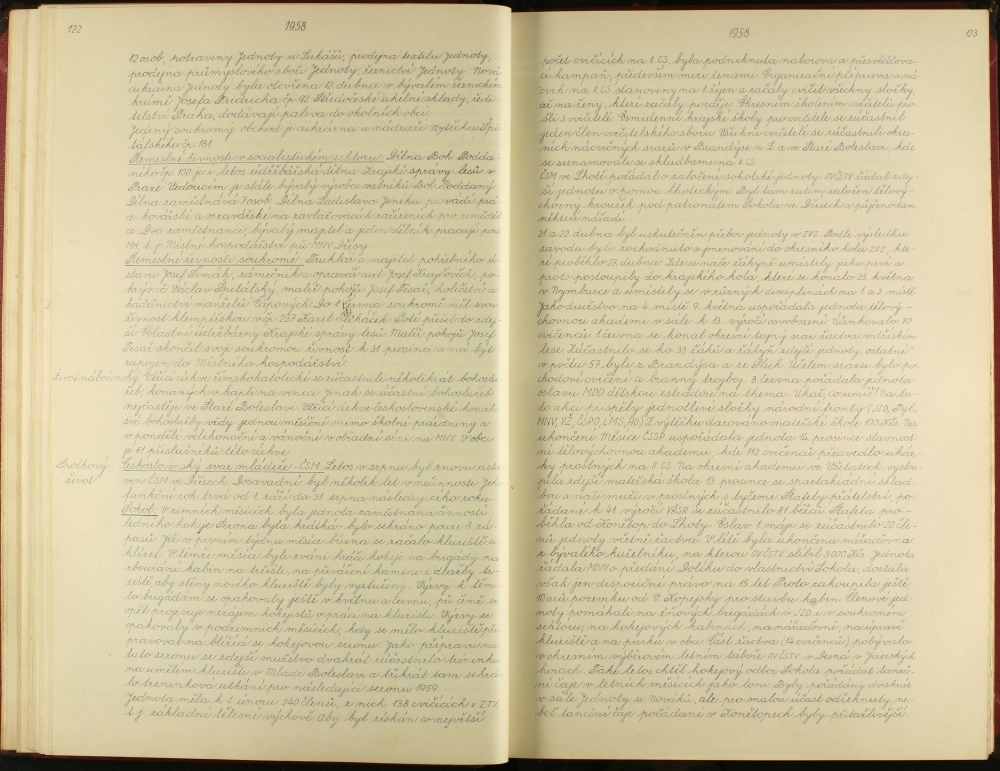 122
1958
12 osob, potraviny Jednoty u Lukášů, prodejna textilu Jednoty,
prodejna průmyslového zboží Jednoty, řeznictví Jednoty. Nová
cukrárna Jednoty byla otevřena 12. dubna v bývalém řeznickém
krámě Josefa Friedricha čp. 92. Středočeské uhelné sklady, ředi-
telství Praha, dodávají paliva do okolních obcí.
Jediný soukromý obchod je cukrárna u nádraží Vojtěcha Špi-
tálského čp. 181.
Řemeslné živnosti v socialistickém sektoru: Dílna Boh. Podda-
ného čp. 100 je i letos údržbářská dílna Krajské správy lesů v
Praze. Vedoucím je stále bývalý výrobce valníků Boh. Poddaný.
Dílna zaměstnává 8 osob. Dílna Ladislava Jeníka provádí prá-
ce kovářské a opravářské na zavlažovacích zařízeních pro zeměděl-
ce. Dva zaměstnanci, bývalý majitel a jeden dělník pracují pod
MH t. j. Místní hospodářství při MNV Dřísy.
Řemeslné živnosti soukromé: Truhlář a majitel pohřebního ú-
stavu Josef Šimák, zámečník a opravář aut Josef Trajčevič, po-
krývač Václav Špitálský, malíř pokojů Josef Tesař, holičství a
kadeřnictví manželů Čápových. Do 1. června soukromě měl svou
živnost klempířskou v čp. 237 Karel Lecháček. Poté přešel do zdej-
ší Oblastní údržbárny Krajské správy lesů. Malíř pokojů Josef
Tesař skončil svoji soukromou živnost k 31. prosinci a má být
zapojen do Místního hospodářství.
Život náboženský Věřící církve římskokatolické se zúčastnili několikrát bohoslu-
žeb, konaných v kapli na Vinici. Jinak se účastní bohoslužeb
nejčastěji ve Staré Boleslavi. Věřící církve československé konali
své bohoslužby vždy jednou měsíčně mimo školní prázdniny a
v pondělí velikonoční a vánoční v obřadní síni na MNV. V obci
je 61 příslušníků této církve.
Spolkový Československý svaz mládeže - ČSM. Letos v srpnu byl znovu usta-
život ven ČSM ve Dřísech. Dosavadní byl několik let v nečinnosti. Jeho
funkční rok trvá od 1. září do 31. srpna následujícího roku.
Sokol. V zimních měsících byla jednota zaměstnána činností
ledního hokeje. Sezona byla krátká - bylo sehráno pouze 8 zá-
pasů. Již v prvním týdnu měsíce března se začalo kluziště u-
klízet. V témže měsíci byli zváni hráči hokeje na brigády na
zbourání kabin na hřišti, na přivážení kamene z dlažby hř-
iště, aby stěny nového kluziště byly vyztuženy. Výzvy k těm-
to brigádám se opakovaly ještě v květnu a červnu, při čemž se
opět projevuje nezájem hokejistů o práci na kluzišti. Výzvy se
opakovaly v podzimních měsících, kdy se mělo kluziště při-
pravovat na blížící se hokejovou sezonu. Jako přípravu na
tuto sezonu se zdejší mužstvo dvakrát zúčastnilo treninku
na umělém kluzišti v Mladé Boleslavi a třikrát tam sehrá-
lo treninková utkání pro následující sezonu 1959.
Jednota měla k 1. únoru 240 členů, z nich 138 cvičících v ZTV,
t. j. základní tělesné výchově. Aby byl získán co největší
1958
123
počet cvičících na II. CS, byla podniknuta náborová a přesvědčova-
cí kampaň, především mezi ženami. Organizační příprava a ná-
cvik na II. CS stanoveny na 1. říjen a začaly cvičit všechny složky,
až na ženy, které začaly později. Okresním školením cvičitelů pro-
šli 3 cvičitelé. Osmidenní krajské školy pro cvičitele se zúčastnil
jeden člen cvičitelského sboru. Všichni cvičitelé se zúčastnili okres-
ních nácvičných srazů v Brandýse n. L. a ve Staré Boleslavi, kde
se seznamovali se skladbami na II. CS.
ČSM ve Lhotě pořádal o založení sokolské jednoty. OVČSTV žádal zdej-
ší jednotu o pomoc lhoteckým. Byl tam zatím založen tělový-
chovný kroužek pod patronátem Sokola ve Dřísech a půjčeno tam
některé nářadí.
21. a 22. dubna byl uskutečněn přebor jednoty v ZVZ. Podle výsledku
závodu bylo rozhodnuto o jmenování do okresního kola ZVZ, kte-
ré proběhlo 27. dubna. Zde se naše žákyně umístily jako prvé a
proto postoupily do krajského kola, které se konalo 25. května
v Nymburce a umístily se v různých disciplinách na 1. a 2. místě.
Jako družstvo na 4. místě. 9. května uspořádala jednota tělový-
chovnou akademii v sále k 13. výročí osvobození. Účinkovalo 70
cvičenců. 1. června se konal okresní tajný sraz žactva v dříském
lese. Zúčastnilo se ho 33 žáků a žákyň zdejší jednoty, ostatní
v počtu 57 byli z Brandýsa a ze Sluh. Účelem srazu bylo po-
chodové cvičení a branný trojboj. 8. června pořádala jednota
oslavu MDD dětskou estrádou na thema „Ukaž, co umíš". Na tu-
to akci přispěly jednotlivé složky národní fronty (JZD, Myl.
MNV, VŽ, ČSPO, LMS, HD). Z výtěžku darováno mateřské škole 100 Kčs. Na
ukončení Měsíce ČSSP uspořádala jednota 14. prosince slavnost-
ní tělovýchovnou akademii, kde 112 cvičenců předvedlo ukáz-
ky prostných na II. CS. Na okresní akademii ve Všetatech vystou-
pila zdejší mateřská škola 13. prosince se spartakiádní sklad-
bou a naši muži v prostných s tyčemi. Štafety přátelství, po-
řádané k 41. výročí VŘSR se zúčastnilo 81 běžců. Štafeta pro-
běhla od Konětop do Lhoty. Oslav 1. máje se zúčastnilo 22 čle-
nů jednoty včetně žactva. V létě byla ukončena nářaďovna
z bývalého kuželníku, na kterou OV ČSTV slíbil 3.000 Kčs. Jednota
žádala MNV o předání Dolíku do vlastnictví Sokola, dostala
však jen disposiční právo na 15 let. Proto zakoupila ještě
10 arů pozemku od V. Kopejsky pro stavbu kabin. Členové jed-
noty pomáhali na žňových brigádách v JZD i v soukromém
sektoru, na hokejových kabinách, na nářaďovně, na úpravě
kluziště a na parku v obci. Část žactva (14 cvičenců) pobývalo
v okresním výběrovém letním táboře OVČSTV v Desné v Jizerských
horách. Také letos chtěl hokejový odbor Sokola pořádat taneč-
ní čaje v letních měsících jako loni. Byly pořádány dvakrát
v sále Jednoty u Nováků, ale pro malou účast odřeknuty, ne-
boť taneční čaje pořádané v Konětopech byly přitažlivější.